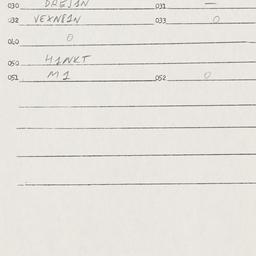 030 DREJAN 031 —
032 VEXNEAN 033 0
040 0
050 HANKT
051 M1 052 0